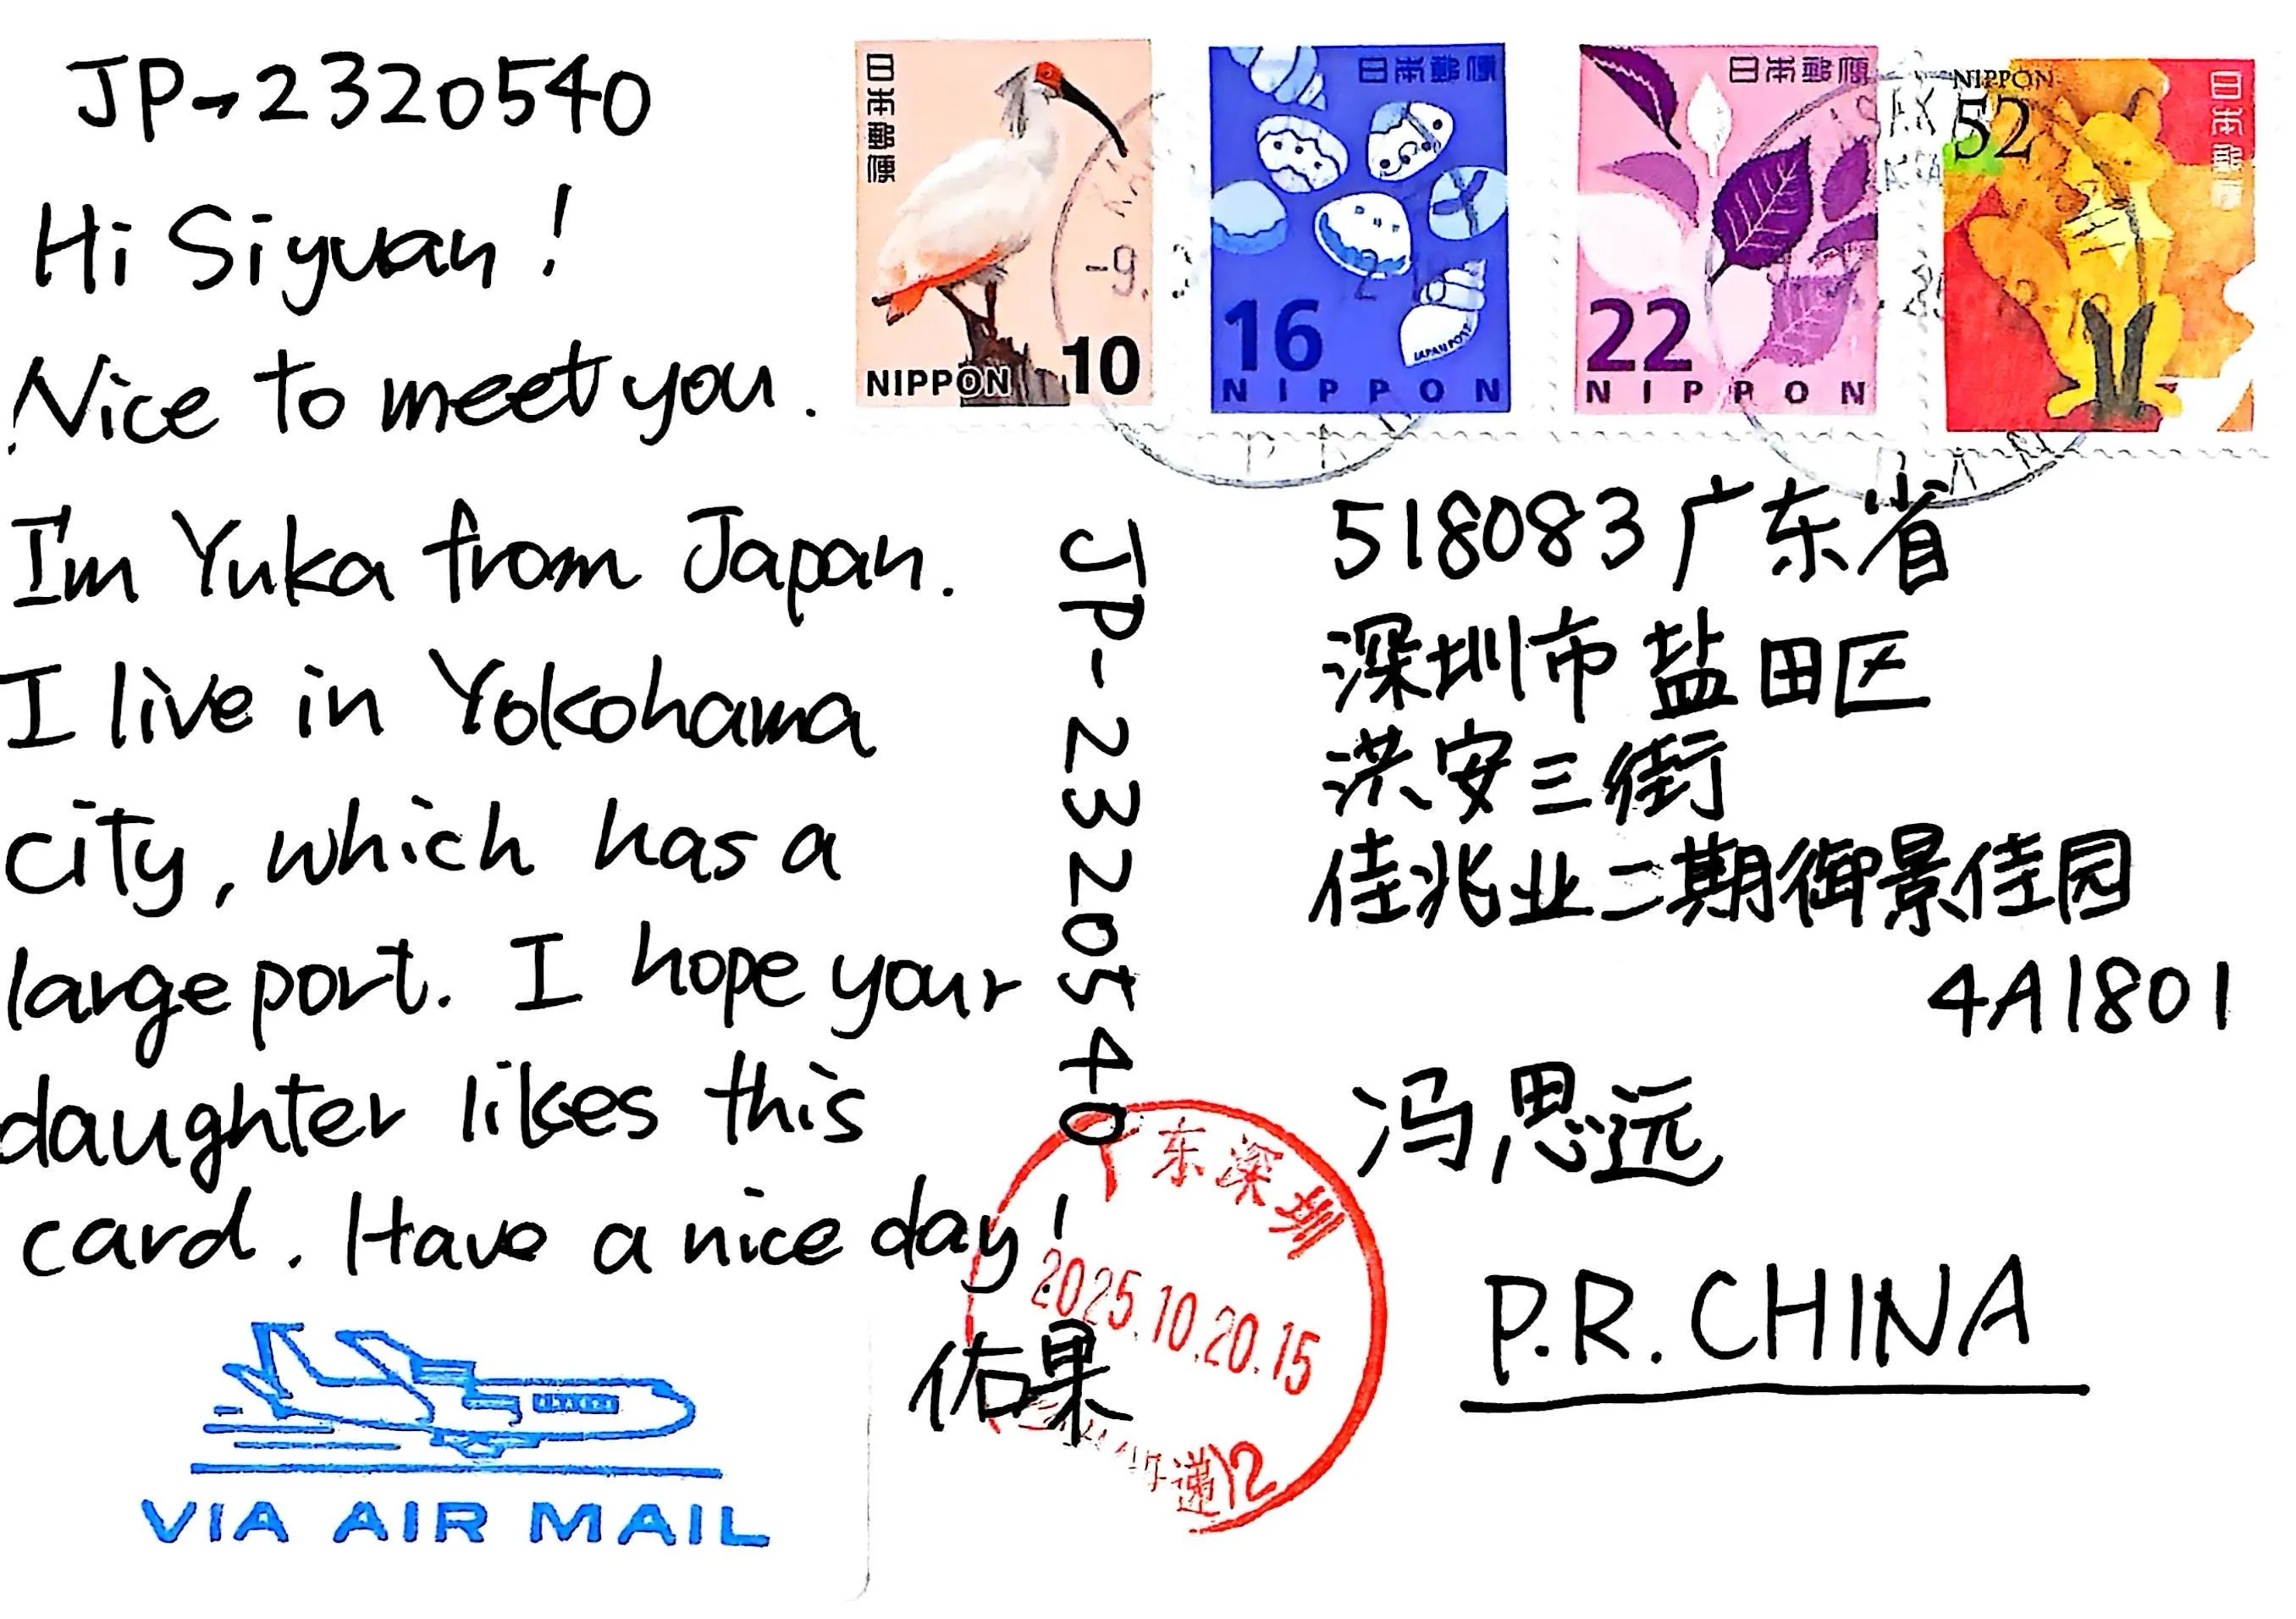 JP-2320540
Hi Siyuan!
Nice to meet you.
I'm Yuka from Japan.
I live in Yokohama
city, which has a
large port. I hope your
daughter likes this
card. Have a nice day!
佑果
VIA AIR MAIL
日本郵便
NIPPON 10
日本郵便
16
JAPAN POST
NIPPON
日本郵便
22
NIPPON
NIPPON
52
日本郵便
-9.
JP-2320540
518083 广东省
深圳市盐田区
洪安三街
佳兆业二期御景佳园
4A1801
冯思远
P.R.CHINA
广东深圳
2025.10.20.15
递12